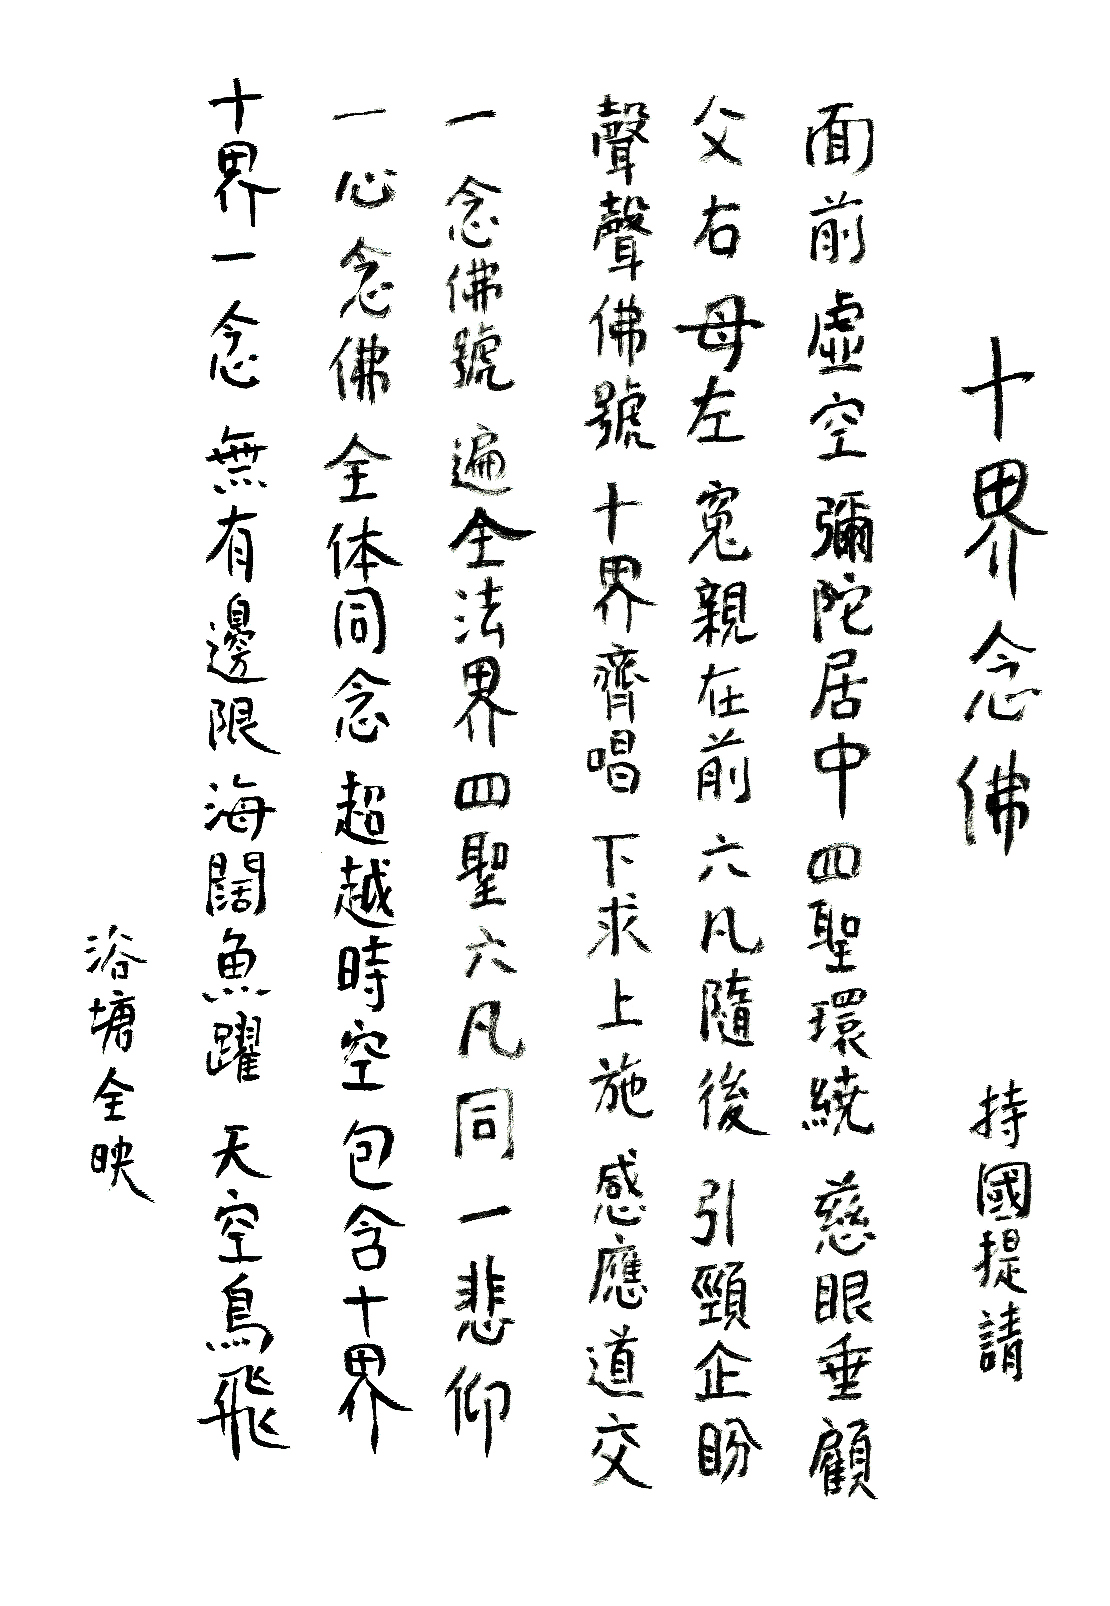 十界念佛 持國提請
面前虛空 彌陀居中 四聖環繞 慈眼垂顧
父右母左 寃親在前 六凡隨後 引頸企盼
聲聲佛號 十界齊唱 下求上施 感應道交
一念佛號 遍全法界 四聖六凡 同一悲仰
一心念佛 全体同念 超越時空 包含十界
十界一念 無有邊限 海闊魚躍 天空鳥飛
浴塘全映